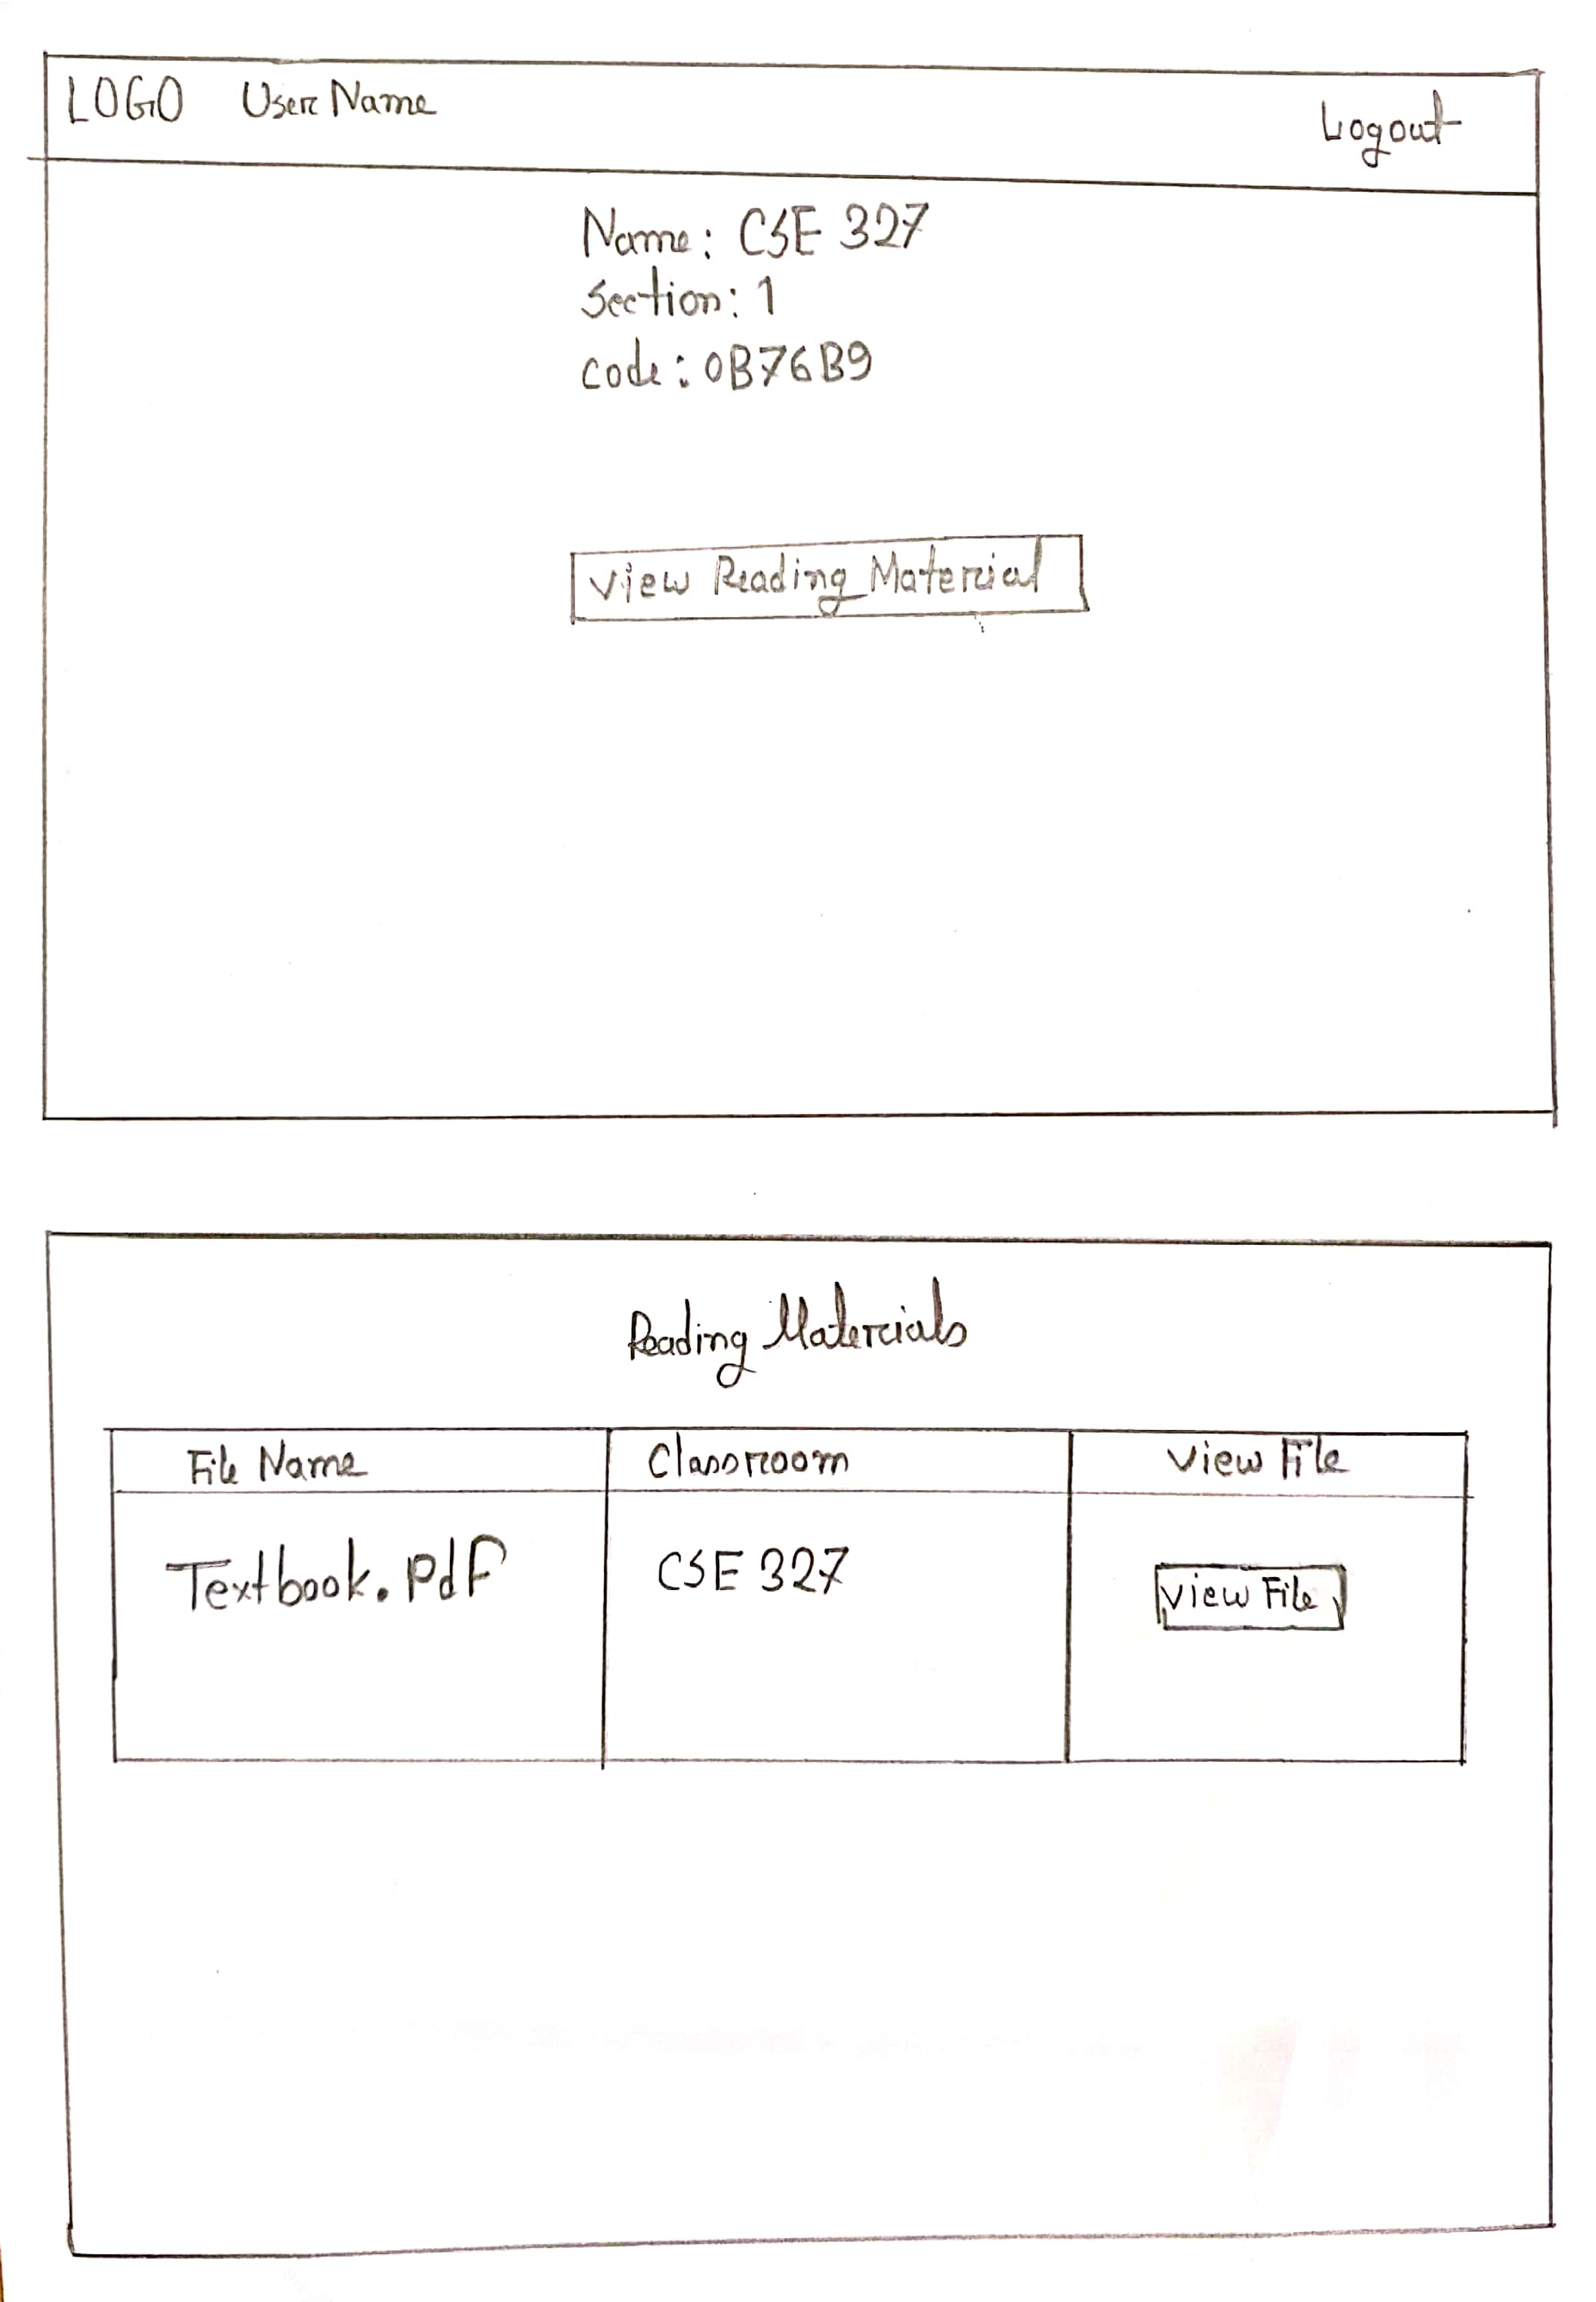 LOGO User Name Logout
Name: CSE 327
Section: 1
code: 0B76B9
View Reading Material
Reading Materials
File Name Classroom View File
Textbook.Pdf CSE 327 View File